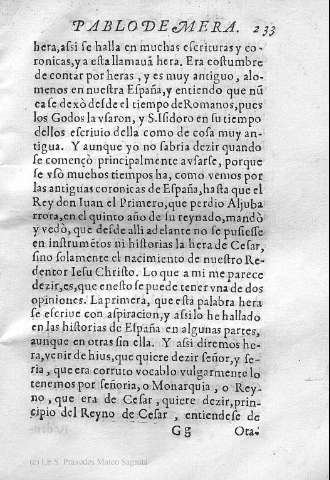 PABLO DE MERA. 233
hera, assi se halla en muchas escrituras y co-
ronicas, y a esta llamauã hera. Era costumbre
de contar por heras, y es muy antiguo, alo-
menos en nuestra España, y entiendo que nũ
ca se dexò desde el tiempo de Romanos, pues
los Godos la vsaron, y S. Isidoro en su tiempo
dellos escriuio della como de cosa muy an-
tigua. Y aunque yo no sabria dezir quando
se començò principalmente a vsarse, porque
se vsò muchos tiempos ha, como vemos por
las antiguas coronicas de España, hasta que el
Rey don Iuan el Primero, que perdio Aljuba
rrota, en el quinto año de su reynado, mandò
y vedò, que desde alli adelante no se pusiesse
en instrumẽtos ni historias la hera de Cesar,
sino solamente el nacimiento de nuestro Re-
dentor Iesu Christo. Lo que a mi me parece
dezir, es, que enesto se puede tener vna de dos
opiniones. La primera, que está palabra hera
se escriue con aspiracion, y assi lo he hallado
en las historias de España en algunas partes,
aunque en otras sin ella. Y assi diremos he-
ra, venir de hius, que quiere dezir señor, y se-
ria, que era corruto vocablo vulgarmente lo
tenemos por señoria, o Monarquia, o Rey-
no, que era de Cesar, quiere dezir, prin-
cipio del Reyno de Cesar, entiendese de
Gg Ota-
(c) I.E.S. Práxedes Mateo Sagasta